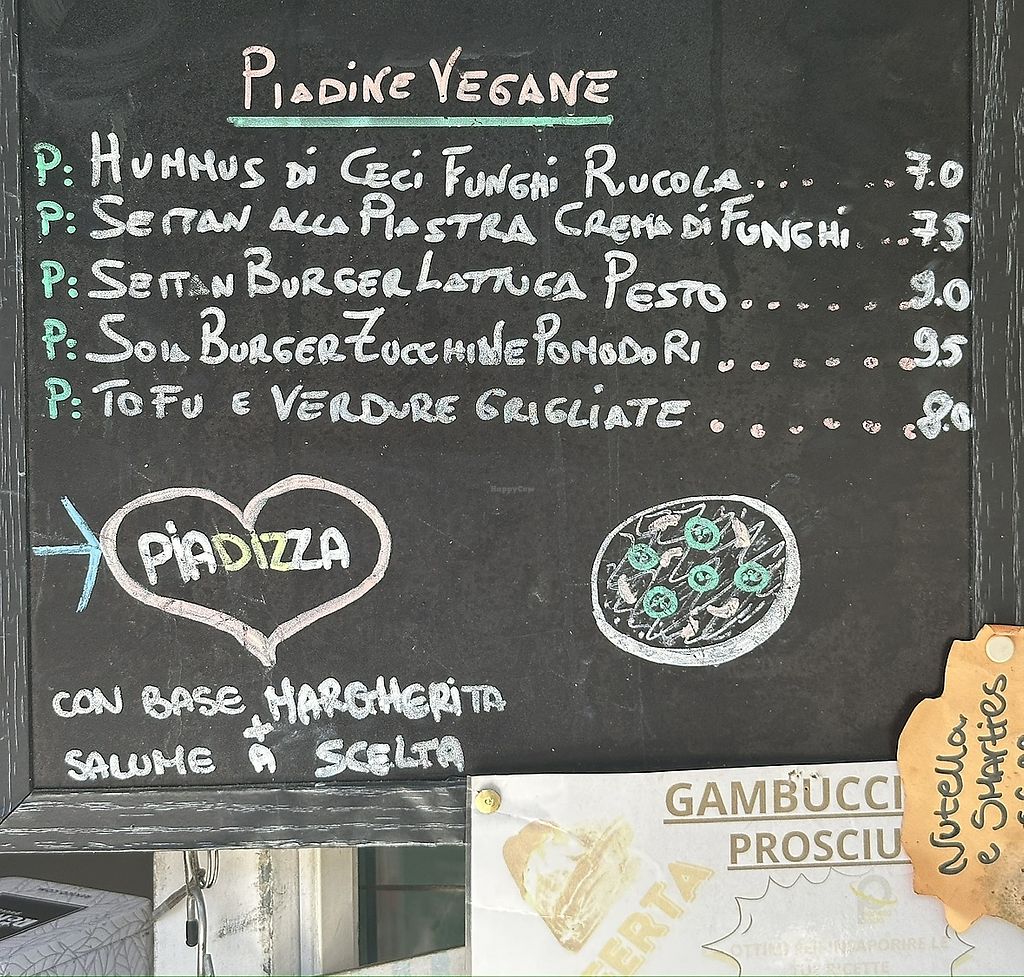 PIADINE VEGANE
P: HUMMUS DI CECI FUNGHI RUCOLA...... 7.0
P: SEITAN ALLA PIASTRA CREMA DI FUNGHI.... 7.5
P: SEITAN BURGER LATTUGA PESTO...... 9.0
P: SOIA BURGER ZUCCHINE POMODORI...... 9.5
P: TOFU E VERDURE GRIGLIATE...... 8.0
PIADIZZA
HappyCow
CON BASE MARGHERITA
+
SALUME A SCELTA
GAMBUCCI
PROSCIU
Nutella
e SMarties
FERTA
OTTIMI PER INSAPORIRE LE
TUE RICETTE